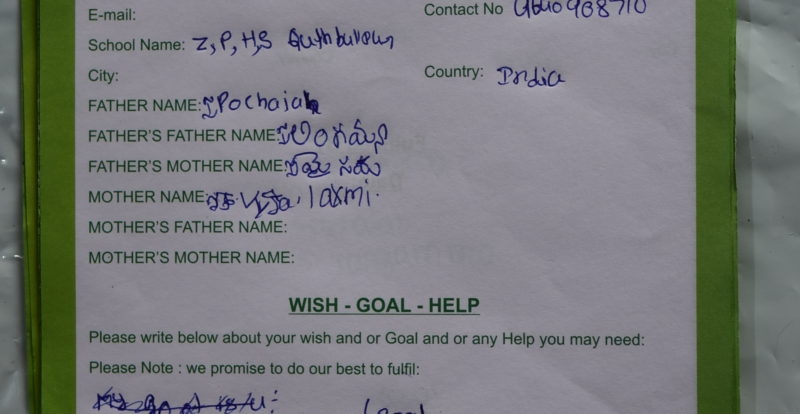 E-mail:
Contact No
School Name: Z, P, H, S
City:
Country: India
FATHER NAME: Pochaiah
FATHER'S FATHER NAME:
FATHER'S MOTHER NAME:
MOTHER NAME: laxmi.
MOTHER'S FATHER NAME:
MOTHER'S MOTHER NAME:
WISH - GOAL - HELP
Please write below about your wish and or Goal and or any Help you may need:
Please Note : we promise to do our best to fulfil: